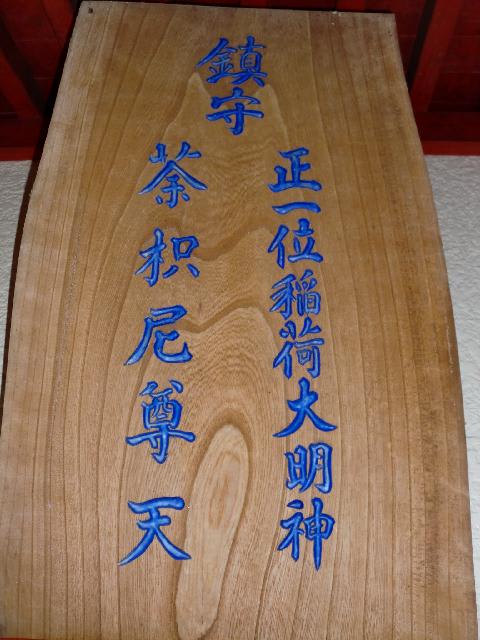 鎮守
正一位稲荷大明神
荼枳尼尊天